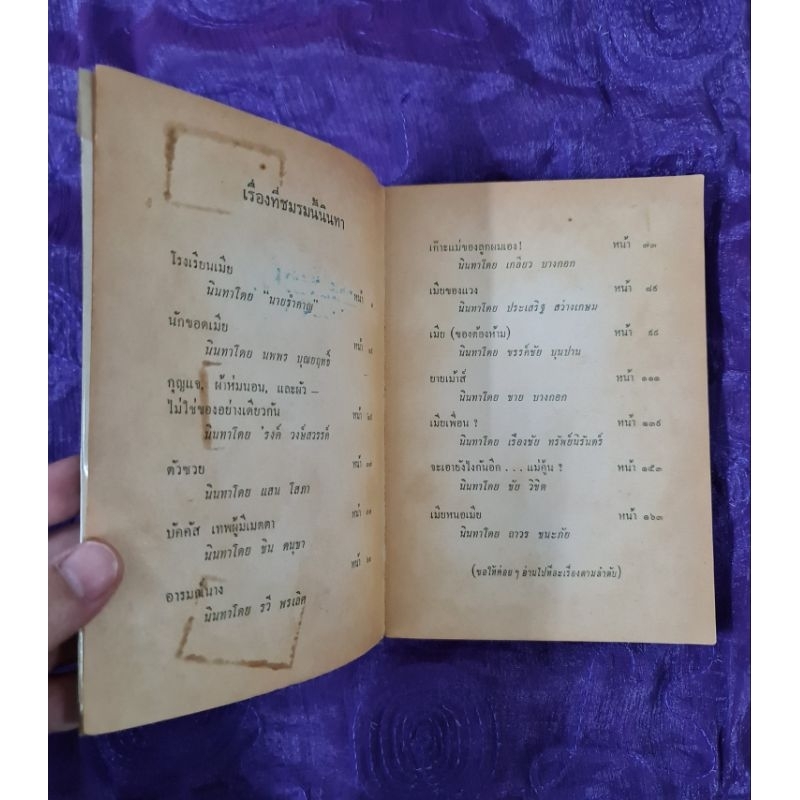 เรื่องที่ชมรมนี้นินทา
โรงเรียนเมีย หน้า ๑
นินทาโดย "นายรำคาญ"
นักขอดเมีย หน้า
นินทาโดย นพพร บุณยฤทธิ์
กุญแจ, ผ้าห่มนอน, และผัว –
ไม่ใช่ของอย่างเดียวกัน หน้า
นินทาโดย 'รงค์ วงษ์สวรรค์
ตัวซวย หน้า
นินทาโดย แสน โสภา
บัคคัส เทพผู้มีเมตตา หน้า
นินทาโดย ชิน ดนุชา
อารมณ์นาง หน้า
นินทาโดย รวี พรเลิศ
เก๊าะแม่ของลูกผมเอง! หน้า ๗๓
นินทาโดย เกลียว บางกอก
เมียของแวง หน้า ๘๕
นินทาโดย ประเสริฐ สว่างเกษม
เมีย (ของต้องห้าม) หน้า ๙๘
นินทาโดย ขรรค์ชัย บุนปาน
ยายเม้าส์ หน้า ๑๑๑
นินทาโดย ชาย บางกอก
เมียเพื่อน ? หน้า ๑๓๙
นินทาโดย เรืองชัย ทรัพย์นิรันดร์
จะเอายังไงกันอีก . . . แม่คู้น ? หน้า ๑๕๓
นินทาโดย ชัย วิชิต
เมียหนอเมีย หน้า ๑๖๓
นินทาโดย ถาวร ชนะภัย
(ขอให้ค่อย ๆ อ่านไปทีละเรื่องตามลำดับ)